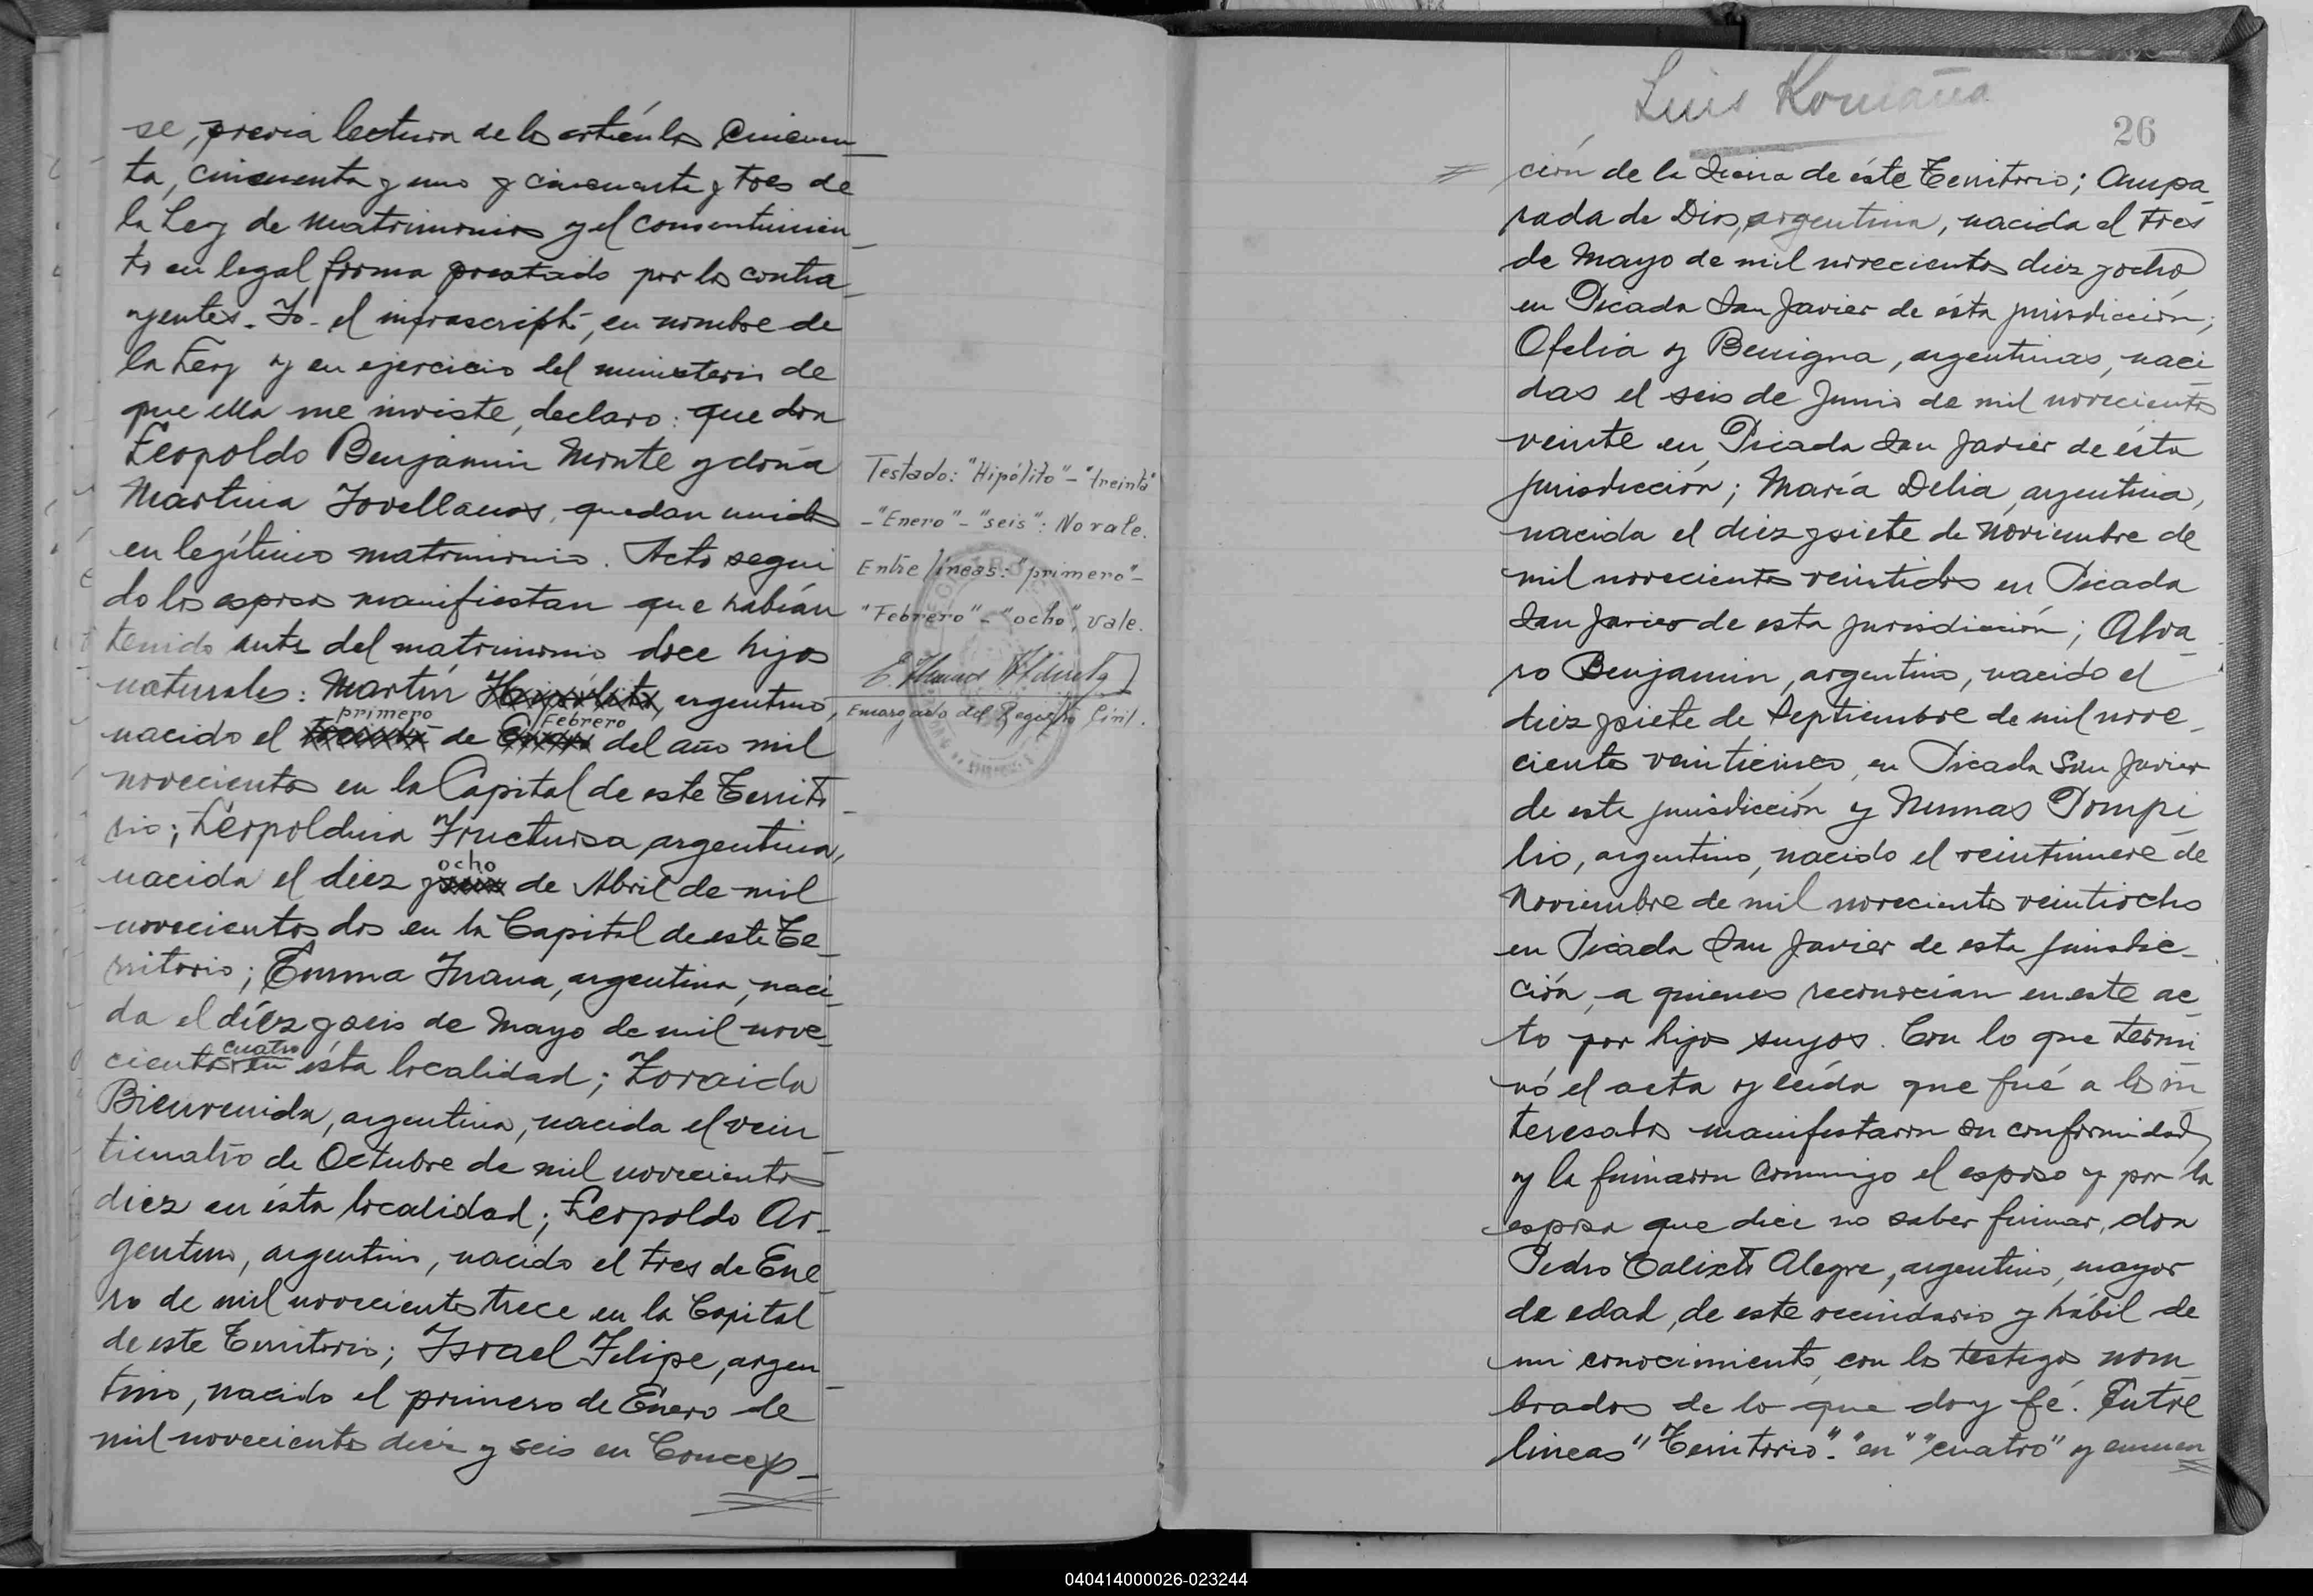 se, previa lectura de los artículos cincuen
ta, cincuenta y uno y cincuenta y tres de
la Ley de Matrimonios y el consentimien
to en legal forma prestado por los contra
yentes. Yo el infrascripto, en nombre de
la Ley y en ejercicio del ministerio de
que ella me inviste, declaro: que don
Leopoldo Benjamin Monte y doña
Martina Jovellanos, quedan unidos
en legítimo matrimonio. Acto segui
do los esposos manifiestan que habían
tenido antes del matrimonio doce hijos
naturales: Martín Hipólito, argentino,
primero Febrero
nacido el treinta de Enero del año mil
novecientos en la Capital de este Territo
rio; Leopoldina Fructuosa, argentina,
ocho
nacida el diez y seis de Abril de mil
novecientos dos en la Capital de este Te
rritorio; Emma Juana, argentina, naci
da el diez y seis de Mayo de mil nove
cuatro
cientos en ésta localidad; Zoraida
Bienvenida, argentina, nacida el vein
ticuatro de Octubre de mil novecientos
diez en ésta localidad; Leopoldo Ar
gentino, argentino, nacido el tres de Ene
ro de mil novecientos trece en la Capital
de este Territorio; Israel Felipe, argen
tino, nacido el primero de Enero de
mil novecientos diez y seis en Concep
Testado: "Hipólito" - "treinta"
- "Enero" - "seis": No vale.
Entre líneas: "primero" -
"Febrero" - "ocho", vale.
Encargado del Registro Civil.
Luis Romaña
26
ción de la Sierra de éste Territorio; Ampa
rada de Dios, argentina, nacida el tres
de Mayo de mil novecientos diez y ocho
en Picada San Javier de ésta jurisdicción;
Ofelia y Benigna, argentinas, naci
das el seis de Junio de mil novecientos
veinte en Picada San Javier de ésta
jurisdicción; María Delia, argentina,
nacida el diez y siete de Noviembre de
mil novecientos veintidos en Picada
San Javier de esta jurisdicción; Alva
ro Benjamin, argentino, nacido el
diez y siete de Septiembre de mil nove
cientos veinticinco, en Picada San Javier
de esta jurisdicción y Numas Pompi
lio, argentino, nacido el veintinueve de
Noviembre de mil novecientos veintiocho
en Picada San Javier de esta jurisdic
ción, a quienes reconocían en este ac
to por hijos suyos. Con lo que termi
nó el acta y leída que fué a los in
teresados manifestaron su conformidad
y la firmaron conmigo el esposo y por la
esposa que dice no saber firmar, don
Pedro Calixto Alegre, argentino, mayor
de edad, de este vecindario y hábil de
mi conocimiento, con los testigos nom
brados de lo que doy fé. Entre
lineas "Territorio". "en" "cuatro" y enmen
040414000026-023244